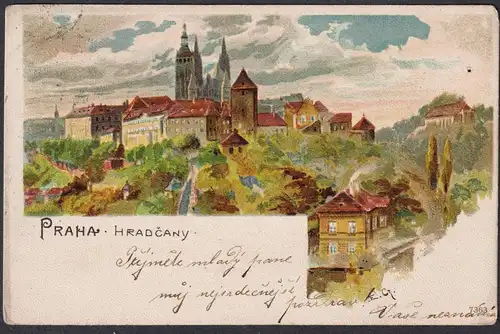 PRAHA · HRADČANY ·
Přijměte mladý pane
můj nejsrdečnější
pozdrav
Vaše neznámá
7363